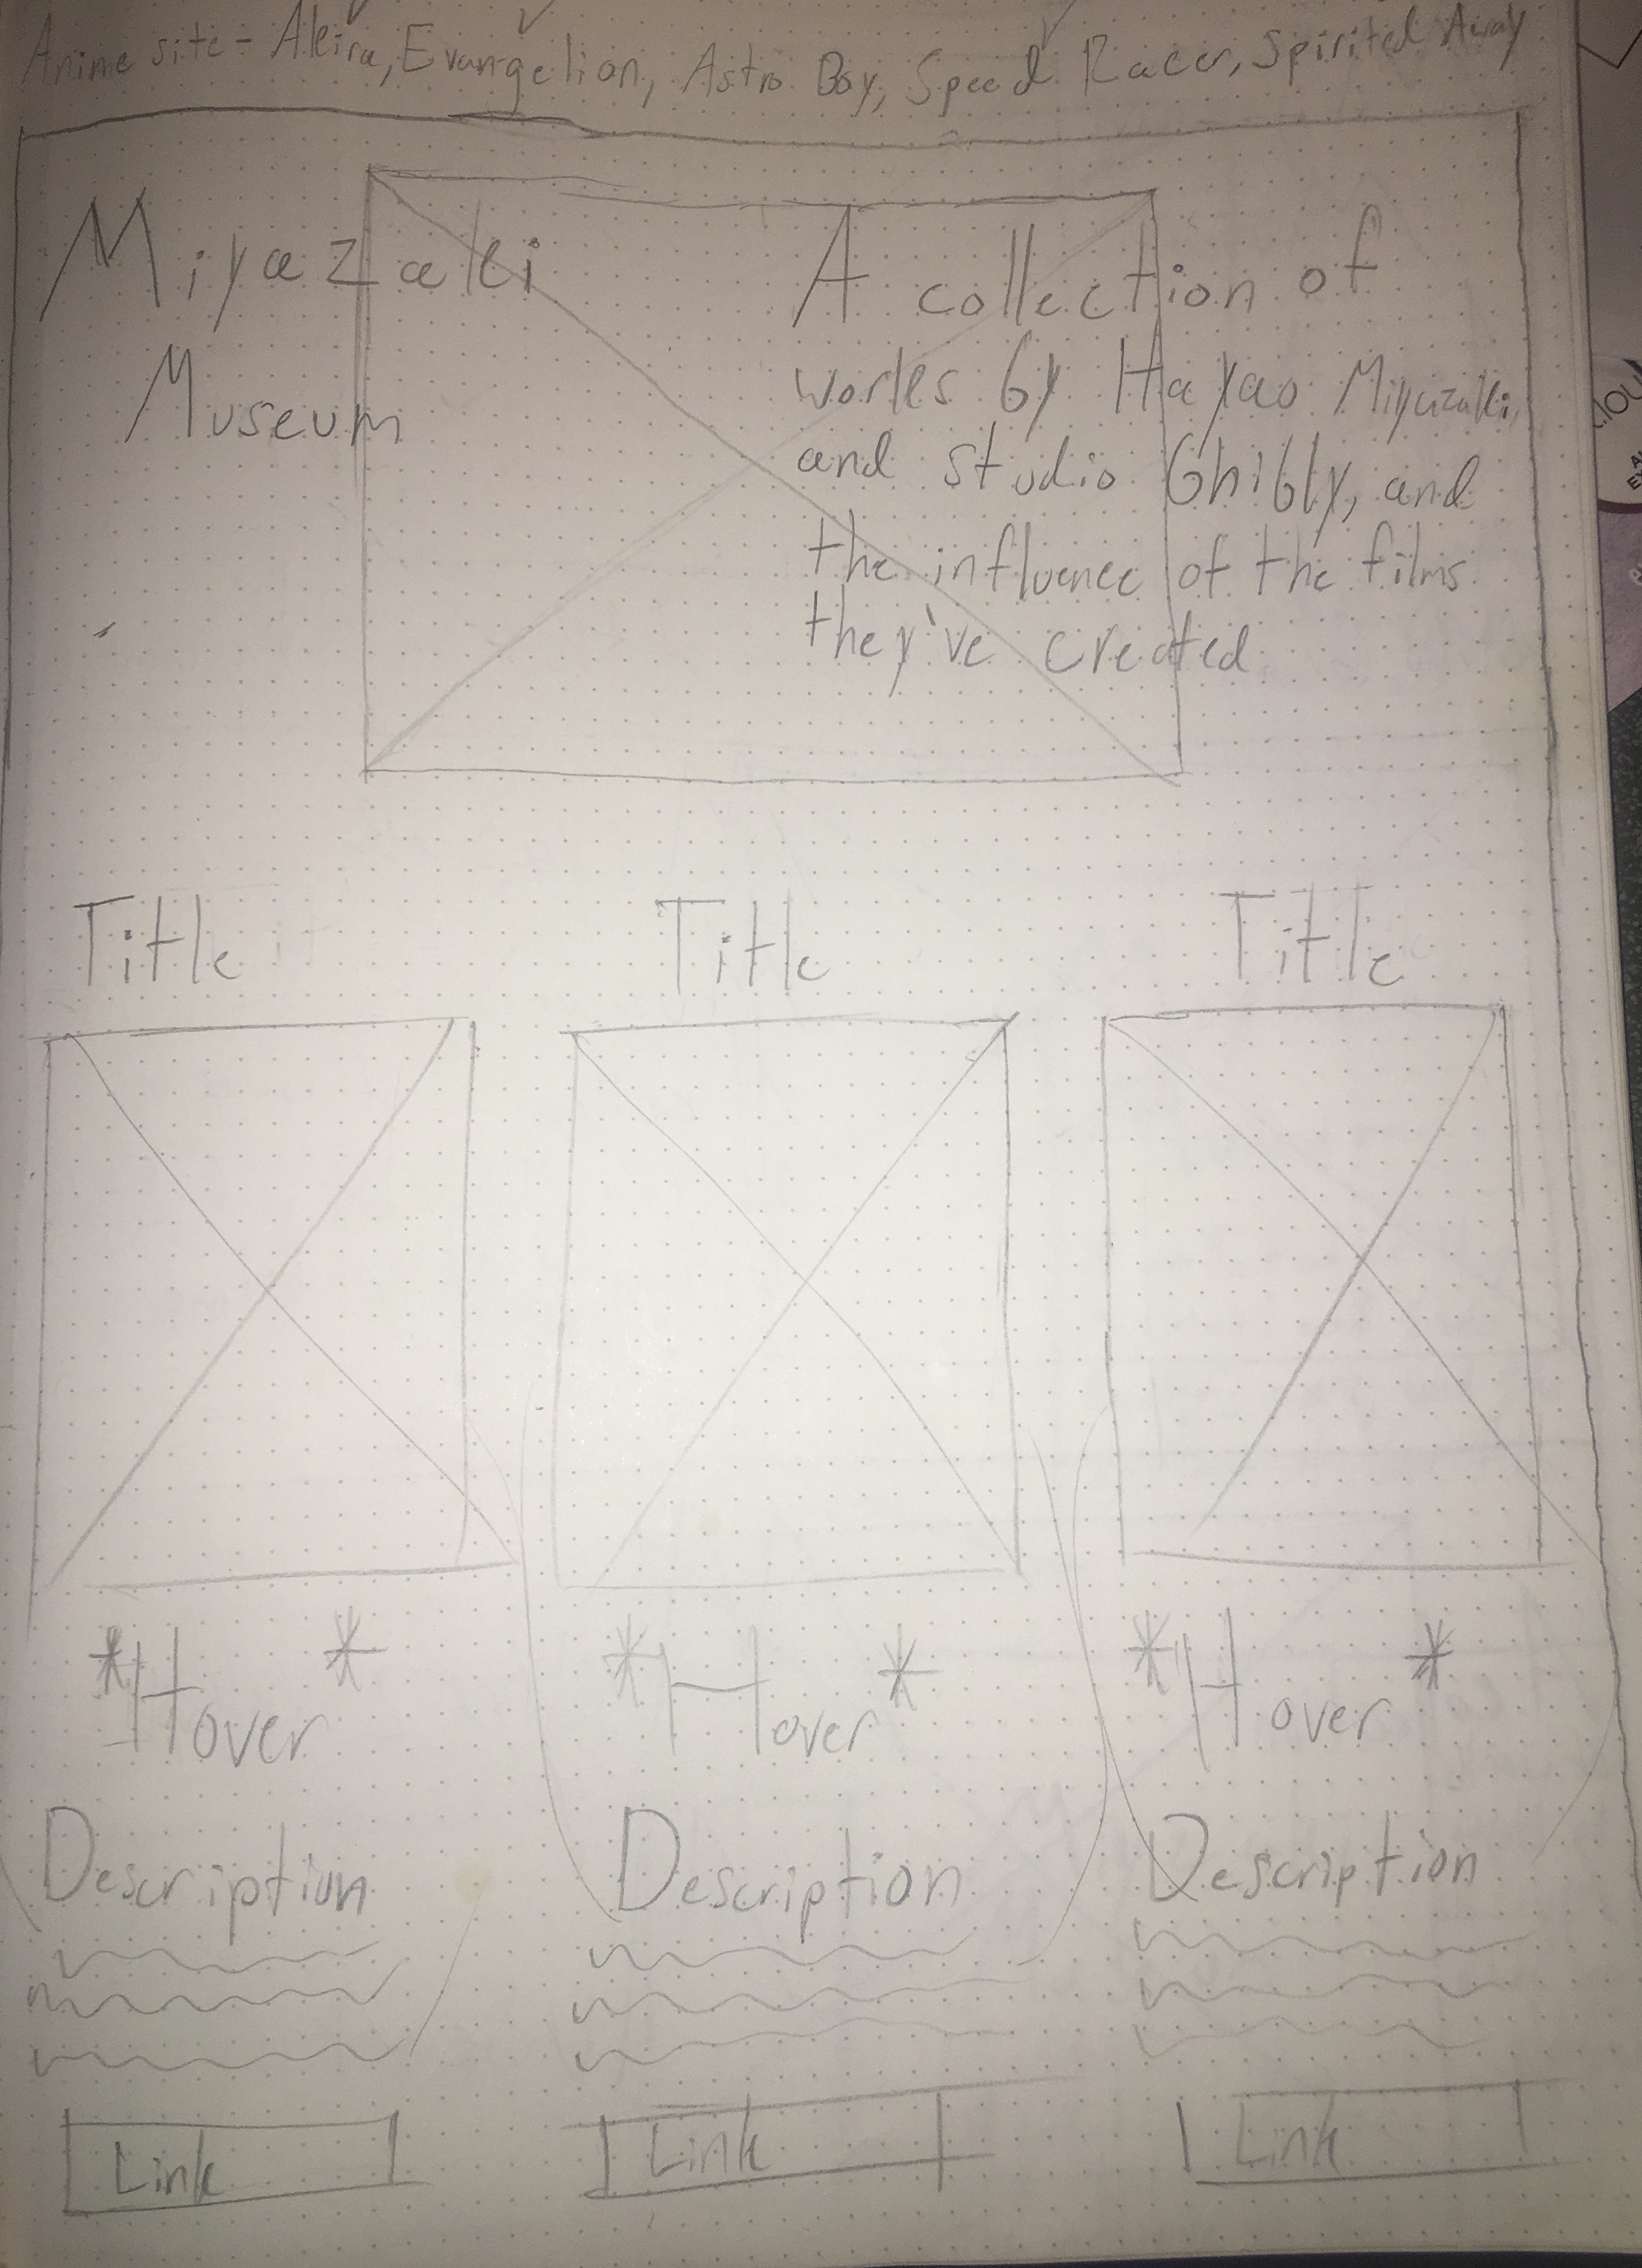 Anime site - Akira, Evangelion, Astro Boy, Speed Racer, Spirited Away
Miyazaki
Museum
A collection of
works by Hayao Miyazaki,
and studio Ghibly, and
the influence of the films
they've created
Title
Title
Title
*Hover *
*Hover*
*Hover*
Description
Description
Description
Link
Link
Link